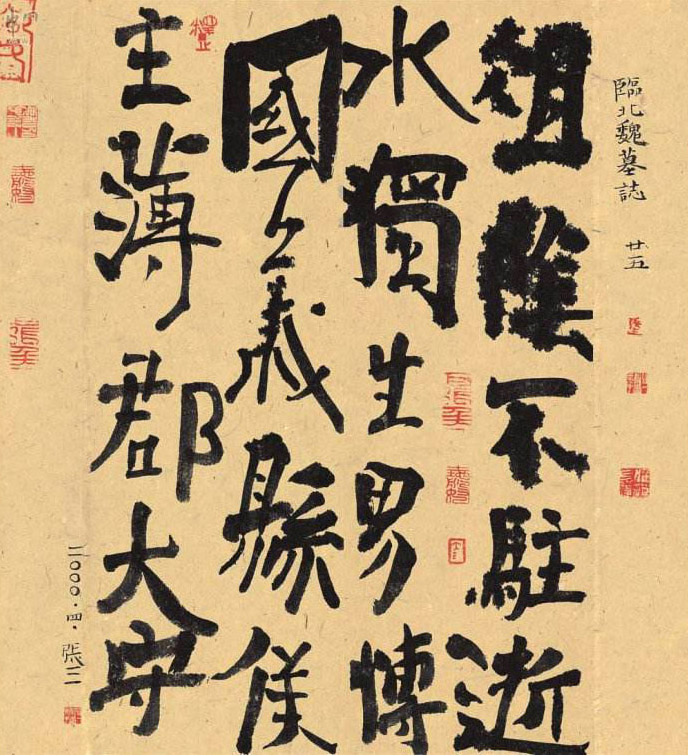 臨北魏墓誌 廿五
徂陰不駐逝
水獨生男博
國公義縣侯
主薄郡大守
二〇〇〇·四·張三